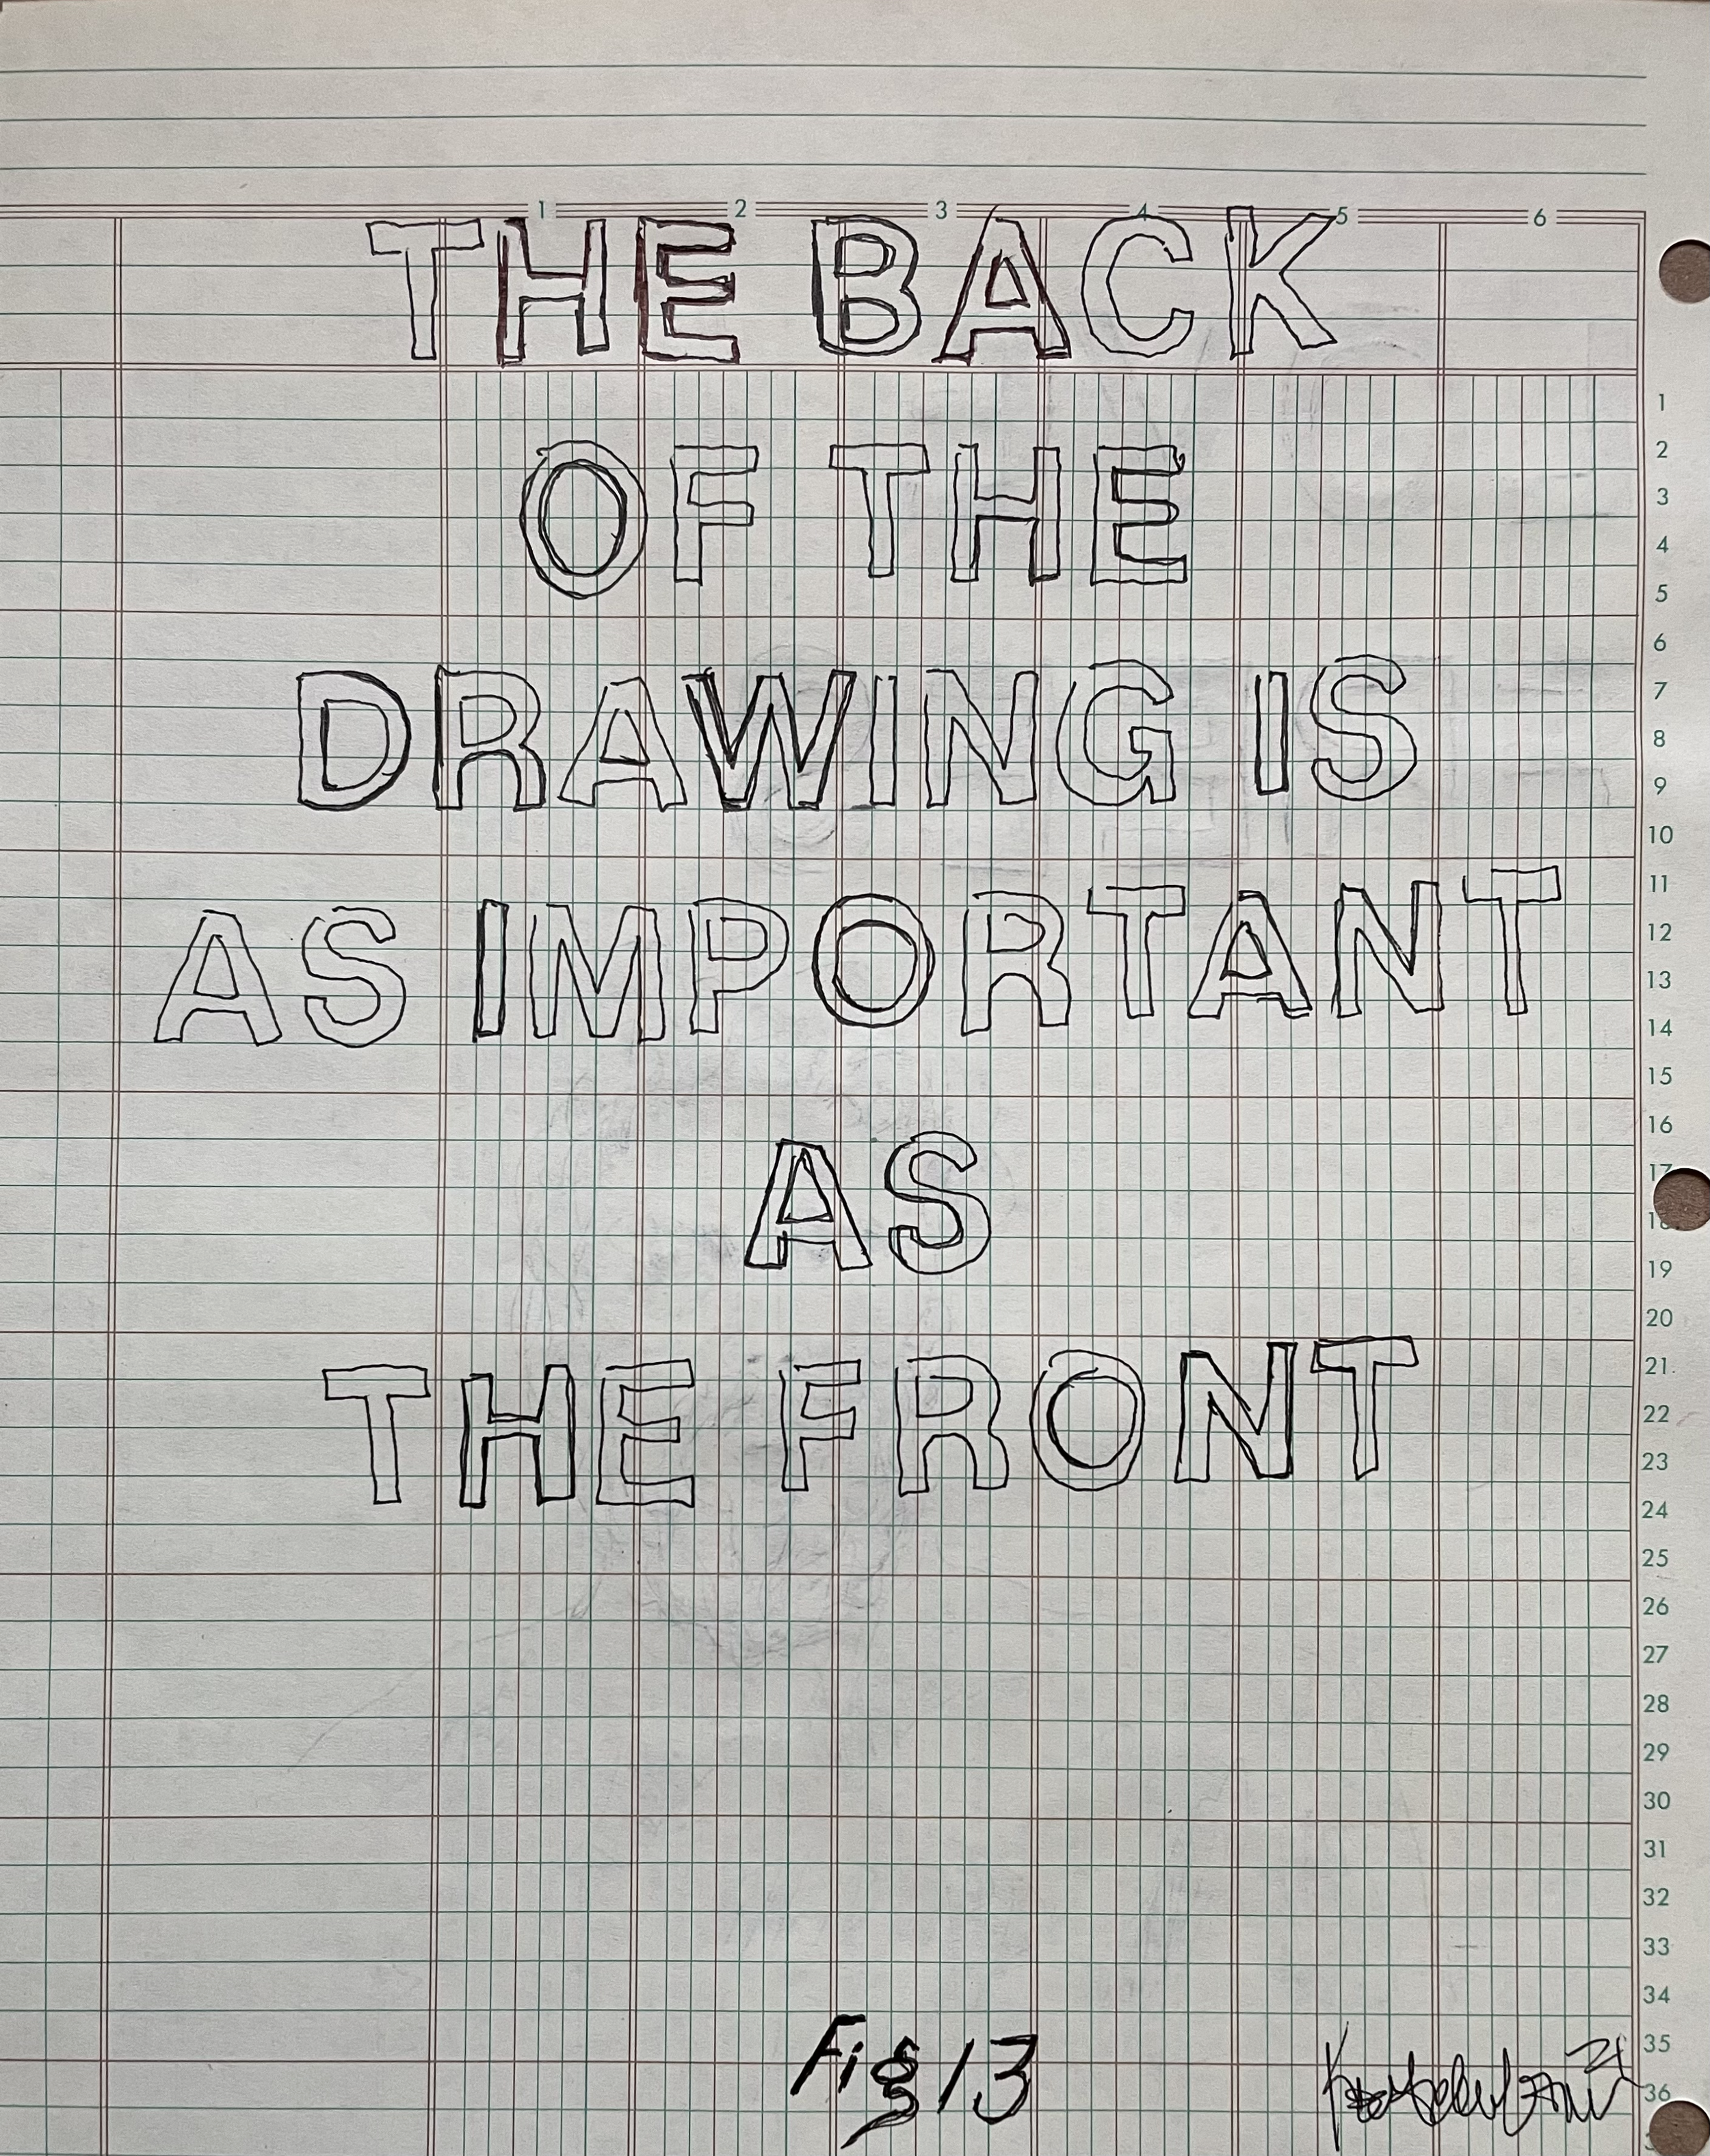 1 2 3 4 5 6
THE BACK
OF THE
DRAWING IS
AS IMPORTANT
AS
THE FRONT
1
2
3
4
5
6
7
8
9
10
11
12
13
14
15
16
17
18
19
20
21
22
23
24
25
26
27
28
29
30
31
32
33
34
35
36
Fig 13